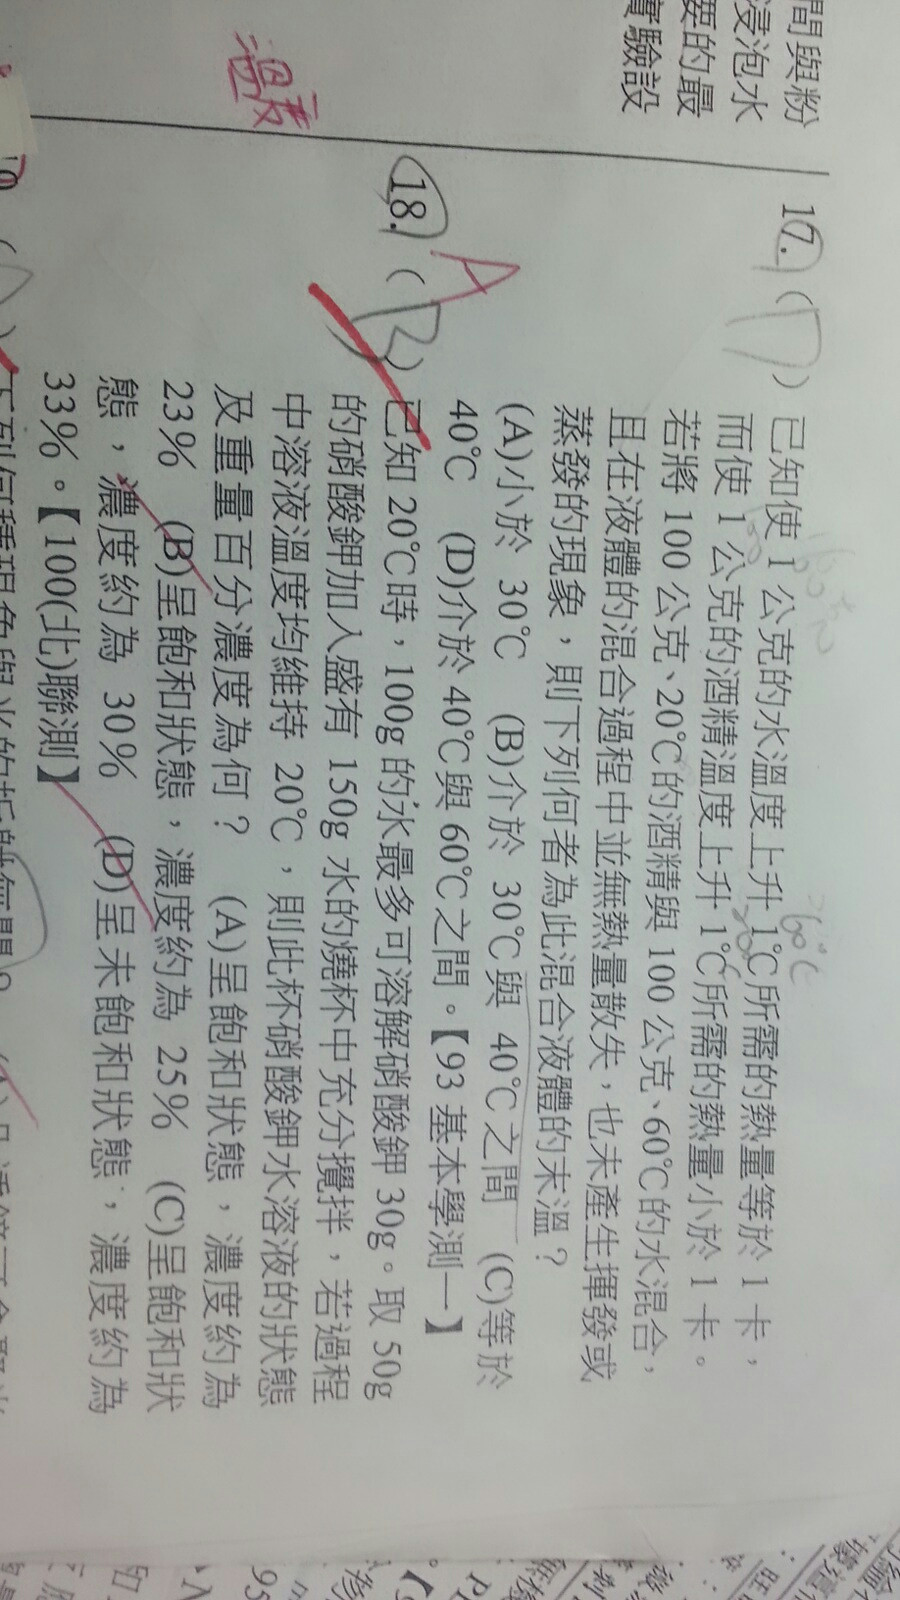 間與粉
浸泡水
要的最
實驗設
17. ( D ) 已知使 1 公克的水溫度上升 1℃所需的熱量等於 1 卡，
而使 1 公克的酒精溫度上升 1℃所需的熱量小於 1 卡。
若將 100 公克、20℃的酒精與 100 公克、60℃的水混合，
且在液體的混合過程中並無熱量散失，也未產生揮發或
蒸發的現象，則下列何者為此混合液體的末溫？
(A)小於 30℃ (B)介於 30℃與 40℃之間 (C)等於
40℃ (D)介於 40℃與 60℃之間。【93 基本學測一】
A
18. ( B ) 已知 20℃時，100g 的水最多可溶解硝酸鉀 30g。取 50g
的硝酸鉀加入盛有 150g 水的燒杯中充分攪拌，若過程
中溶液溫度均維持 20℃，則此杯硝酸鉀水溶液的狀態
及重量百分濃度為何？ (A)呈飽和狀態，濃度約為
23% (B)呈飽和狀態，濃度約為 25% (C)呈飽和狀
態，濃度約為 30% (D)呈未飽和狀態，濃度約為
33%。【100(北)聯測】
60℃